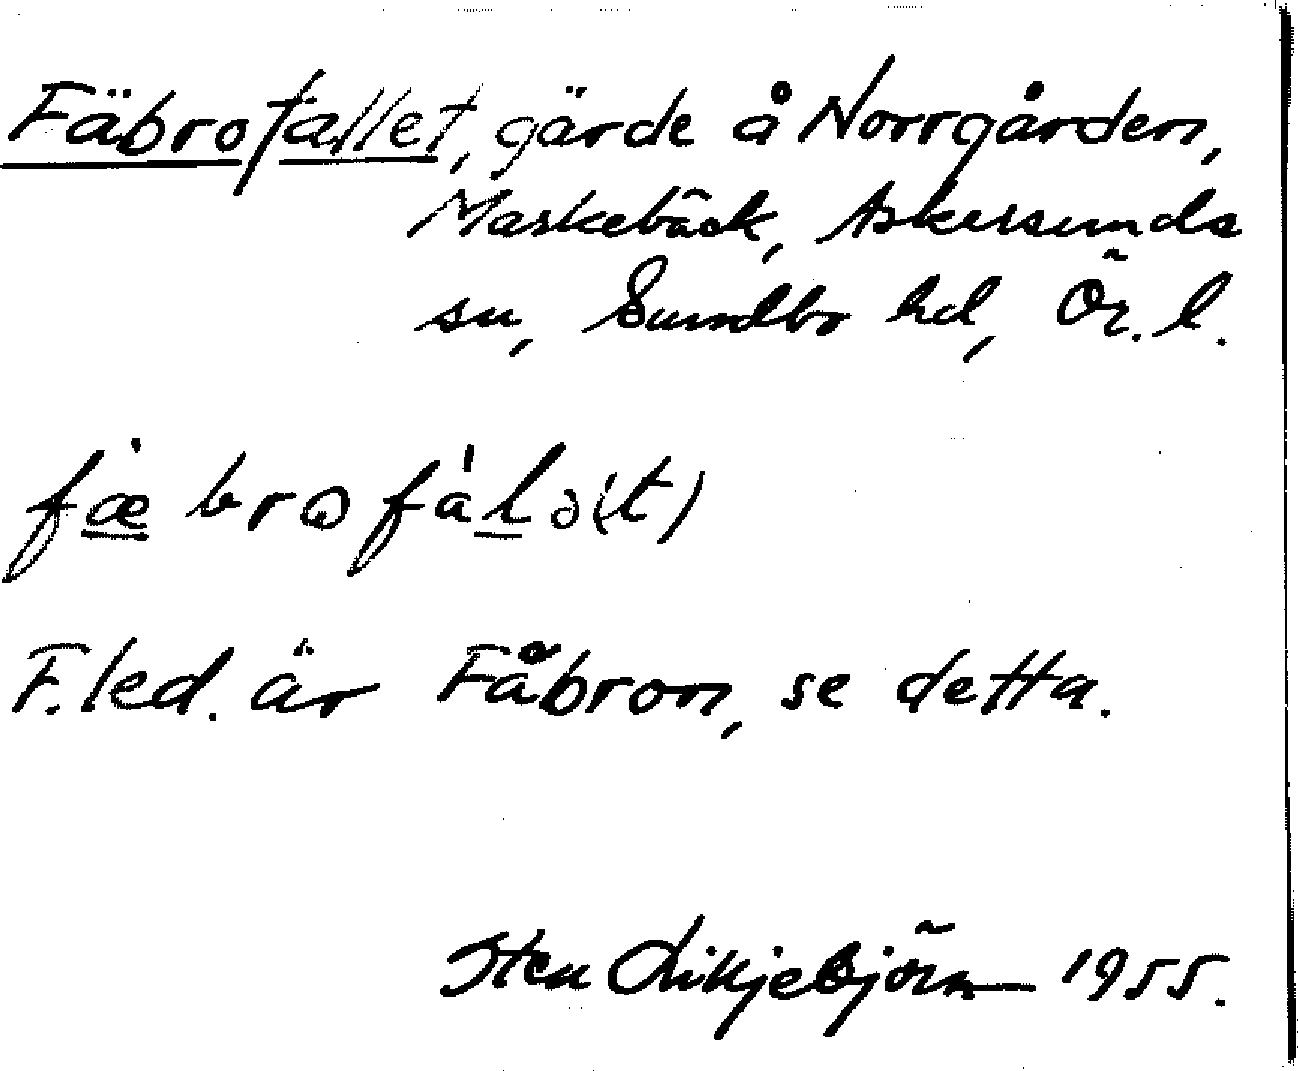 Fäbrofallet, gärde å Norrgården,
Maskebäck, Askersunds
sn, Sundbo hd, Ör. l.
fæ̀ brɷ fàlə(t)
F. led. är Fåbron, se detta.
Sten Liljebjörn 1955.